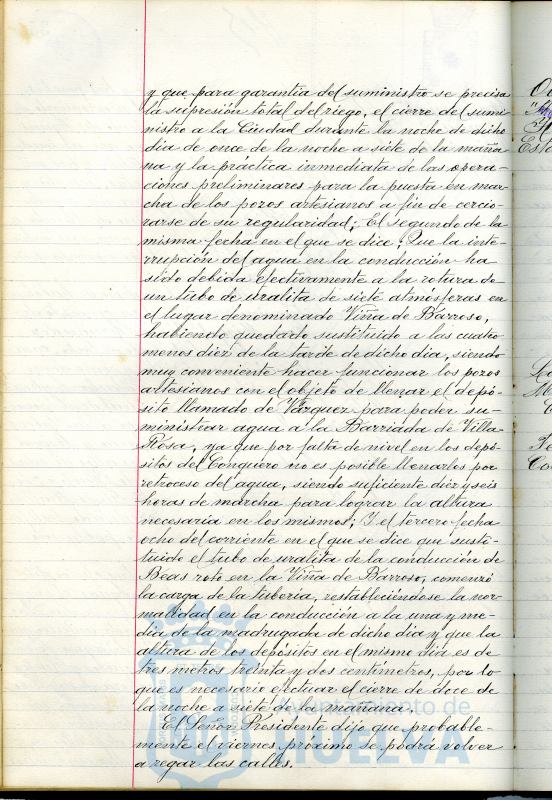 y que para garantía del suministro se precisa
la supresión total del riego, el cierre del sumi-
nistro a la Ciudad durante la noche de dicho
dia de once de la noche a siete de la maña-
na y la práctica inmediata de las opera-
ciones preliminares para la puesta en mar-
cha de los pozos artesianos a fin de cercio-
rarse de su regularidad; El segundo de la
misma fecha en el que se dice: Que la inte-
rrupción del agua en la conducción ha
sido debida efectivamente a la rotura de
un tubo de uralita de siete atmósferas en
el lugar denominado Viña de Barroso,
habiendo quedado sustituido a las cuatro
menos diez de la tarde de dicho dia, siendo
muy conveniente hacer funcionar los pozos
artesianos con el objeto de llenar el depó-
sito llamado de Vázquez para poder su-
ministrar agua a la Barriada de Villa
Rosa, ya que por falta de nivel en los depó-
sitos del Conquero no es posible llenarlos por
retroceso del agua, siendo suficiente diez y seis
horas de marcha para lograr la altura
necesaria en los mismos; Y el tercero fecha
ocho del corriente en el que se dice que susti-
tuido el tubo de uralita de la conducción de
Beas roto en la Viña de Barroso, comenzó
la carga de la tuberia, restableciéndose la nor-
malidad en la conducción a la una y me-
dia de la madrugada de dicho dia y que la
altura de los depósitos en el mismo dia es de
tres metros treinta y dos centímetros, por lo
que es necesario efectuar el cierre de doce de
la noche a siete de la mañana.
El Señor Presidente dijo que probable-
mente el viernes próximo se podrá volver
a regar las calles.
Ayuntamiento de
HUELVA